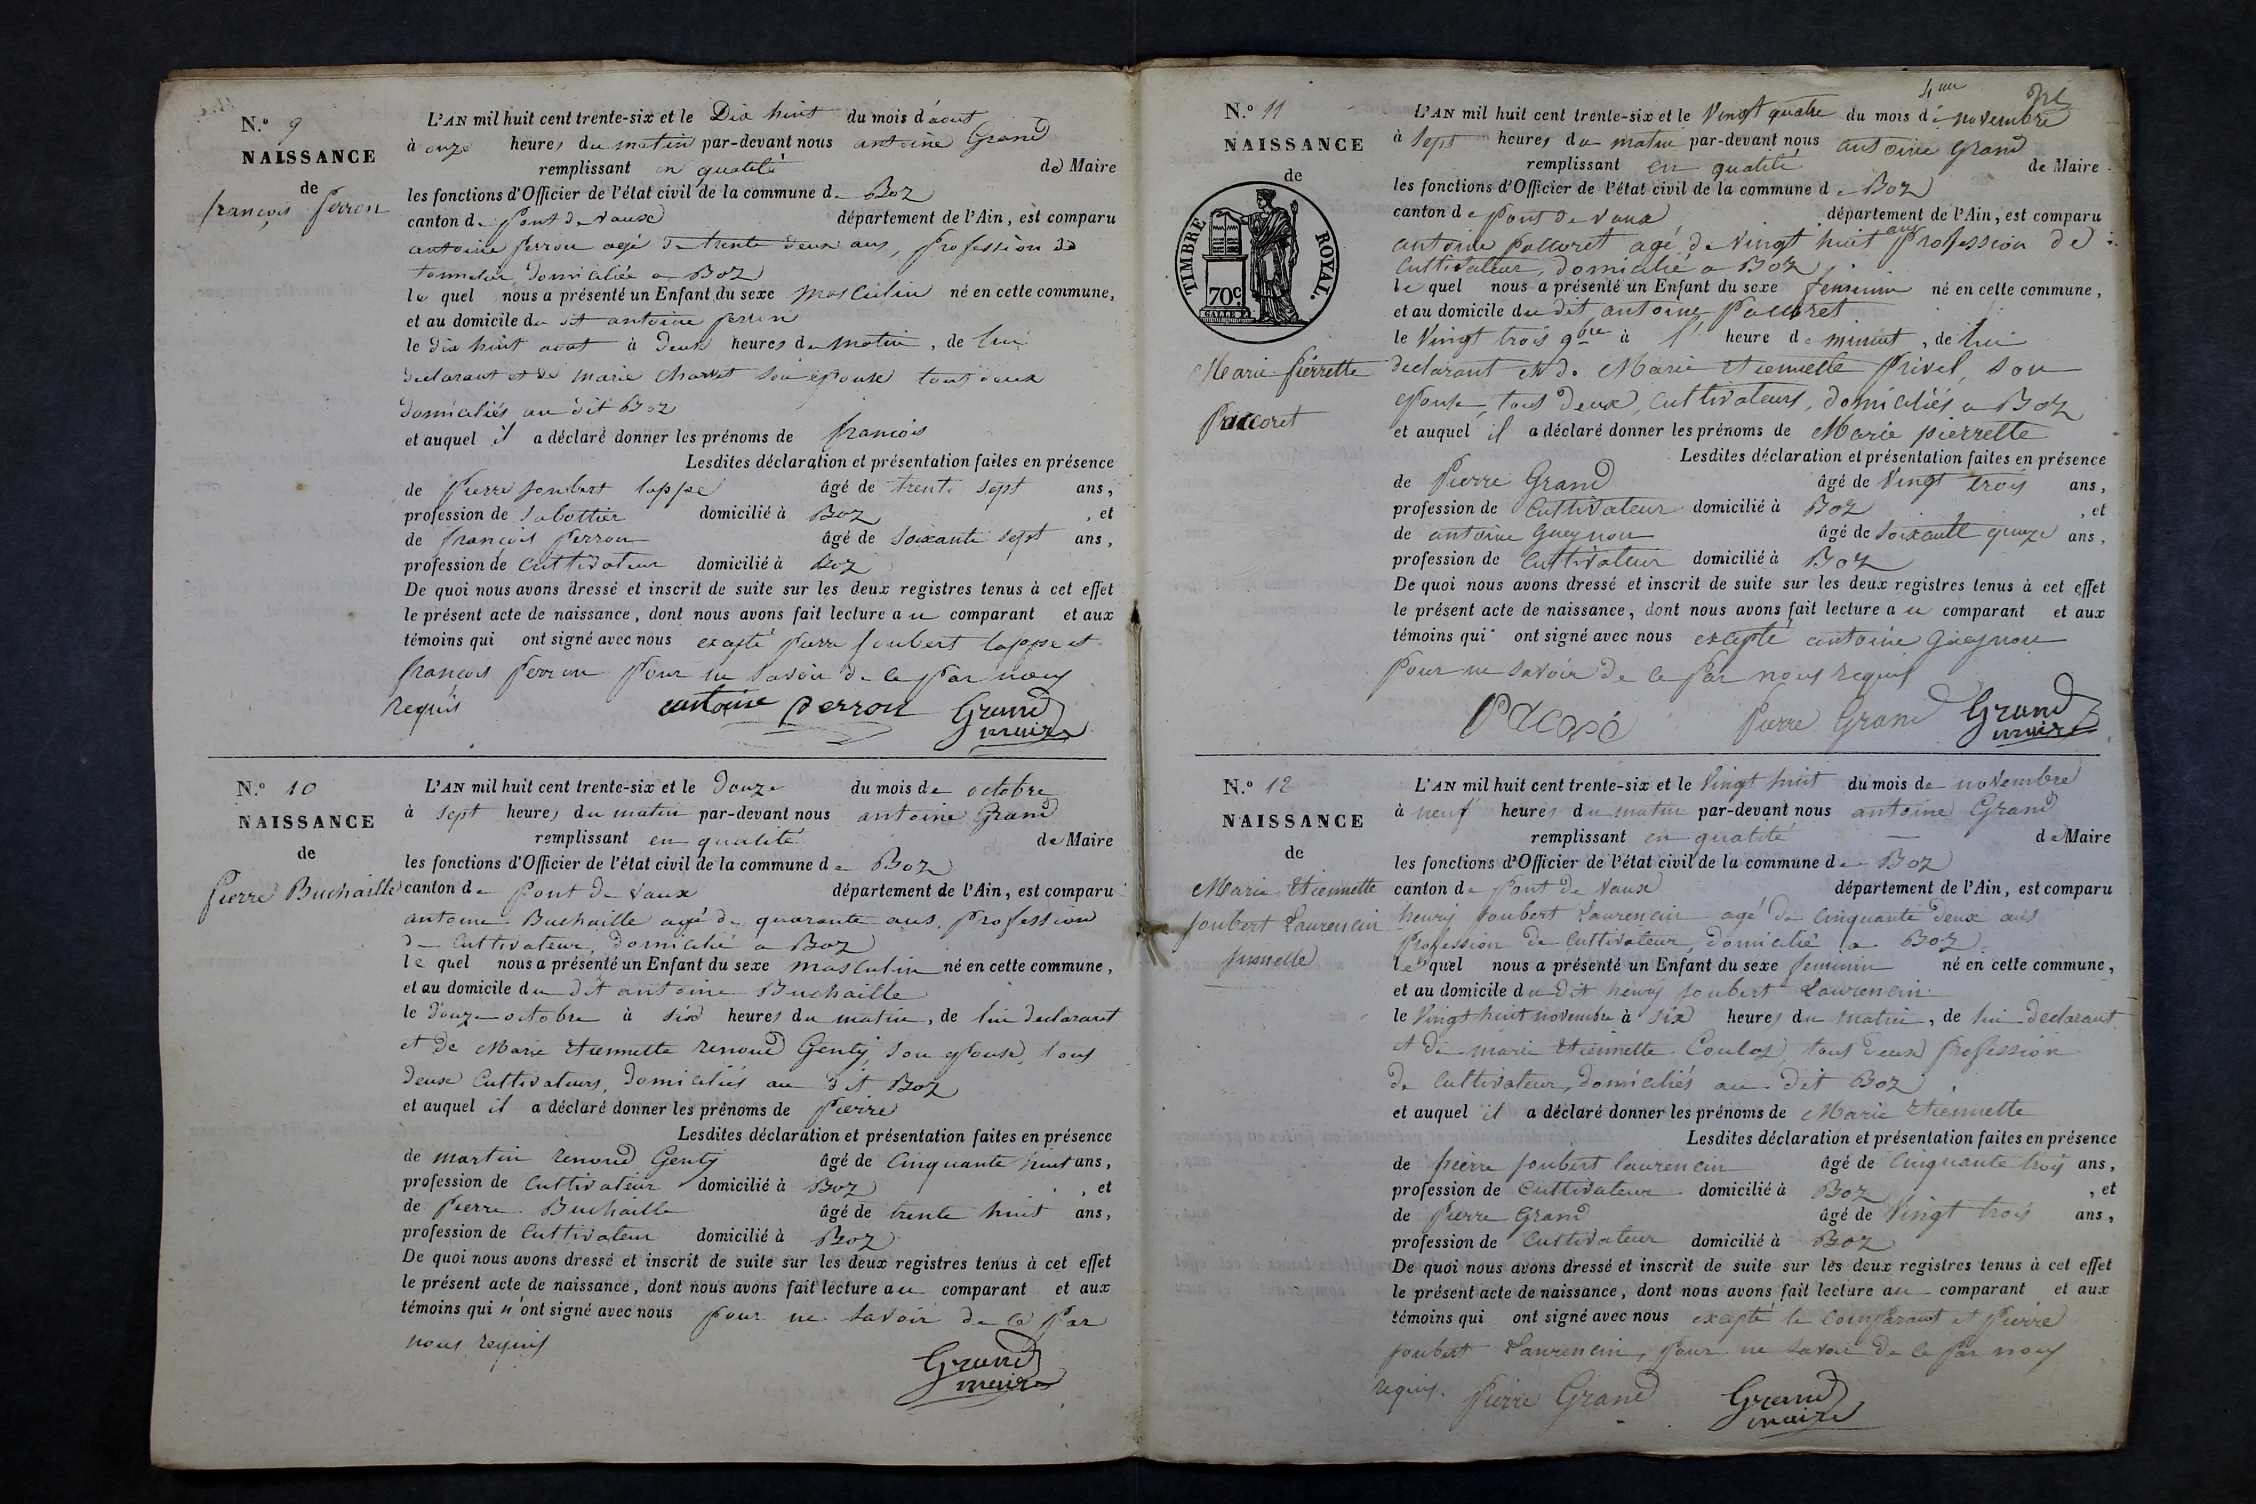 N.º 9
NAISSANCE
de
françois ferron
L'AN mil huit cent trente-six et le Dix huit du mois d'aout
à onze heures du matin par-devant nous antoine Grand
remplissant en qualité de Maire
les fonctions d'Officier de l'état civil de la commune de Boz
canton de Pont de Vaux département de l'Ain, est comparu
antoine ferron agé de trente deux ans, profession de
tonnelier, domiciliée a Boz
le quel nous a présenté un Enfant du sexe masculin né en cette commune,
et au domicile du dit antoine ferron
le dix huit aout à deux heures du matin, de lui
declarant et de marie Charvet son épouse tout deux
domiciliés au dit Boz
et auquel il a déclaré donner les prénoms de francois
Lesdites déclaration et présentation faites en présence
de Pierre Joubert lappe âgé de trente sept ans,
profession de sabottier domicilié à Boz, et
de francois ferron âgé de soixante sept ans,
profession de cultivateur domicilié à Boz
De quoi nous avons dressé et inscrit de suite sur les deux registres tenus à cet effet
le présent acte de naissance, dont nous avons fait lecture au comparant et aux
témoins qui ont signé avec nous excepté pierre Joubert lappe et
francois ferron pour ne savoir de ce par nous
requis
antoine perron Grand
maire
N.º 10
NAISSANCE
de
Pierre Buchaille
L'AN mil huit cent trente-six et le douze du mois de octobre
à sept heures du matin par-devant nous antoine Grand
remplissant en qualité de Maire
les fonctions d'Officier de l'état civil de la commune de Boz
canton de Pont de Vaux département de l'Ain, est comparu
antoine Buchaille agé de quarante ans, profession
de Cultivateur, domicilié a Boz
le quel nous a présenté un Enfant du sexe masculin né en cette commune,
et au domicile du dit antoine Buchaille
le douze octobre à six heures du matin, de lui declarant
et de Marie Etiennette renoud Genty, son epouse, tous
deux Cultivateurs, domiciliés au dit Boz
et auquel il a déclaré donner les prénoms de Pierre
Lesdites déclaration et présentation faites en présence
de martin renoud Genty âgé de Cinquante huit ans,
profession de Cultivateur domicilié à Boz, et
de Pierre Buchaille âgé de trente huit ans,
profession de Cultivateur domicilié à Boz
De quoi nous avons dressé et inscrit de suite sur les deux registres tenus à cet effet
le présent acte de naissance, dont nous avons fait lecture au comparant et aux
témoins qui n'ont signé avec nous pour ne savoir de ce par
nous requis
Grand
maire
4me
N.º 11
NAISSANCE
de
TIMBRE ROYAL.
70c.
Marie pierrette
Paccoret
L'AN mil huit cent trente-six et le Vingt quatre du mois de novembre
à sept heures du matin par-devant nous antoine Grand
remplissant en qualité de Maire
les fonctions d'Officier de l'état civil de la commune de Boz
canton de Pont de Vaux département de l'Ain, est comparu
antoine Paccoret agé de Vingt huit ans profession de
Cultivateur, domicilié a Boz
le quel nous a présenté un Enfant du sexe feminin né en cette commune,
et au domicile du dit antoine Paccoret
le Vingt trois 9bre à 1 heure de minuit, de lui
declarant et de Marie Etiennette Privel, son
epouse, tous deux, cultivateurs, domiciliés a Boz
et auquel il a déclaré donner les prénoms de Marie pierrette
Lesdites déclaration et présentation faites en présence
de Pierre Grand âgé de Vingt trois ans,
profession de Cultivateur domicilié à Boz, et
de antoine Gueynon âgé de soixante quinze ans,
profession de Cultivateur domicilié à Boz
De quoi nous avons dressé et inscrit de suite sur les deux registres tenus à cet effet
le présent acte de naissance, dont nous avons fait lecture au comparant et aux
témoins qui ont signé avec nous excepté antoine Gueynon
pour ne savoir de ce par nous requis
Pierre Grand Grand
maire
N.º 12
NAISSANCE
de
Marie Etiennette
Joubert Laurencin
jumelle
L'AN mil huit cent trente-six et le Vingt huit du mois de novembre
à neuf heures du matin par-devant nous antoine Grand
remplissant en qualité de Maire
les fonctions d'Officier de l'état civil de la commune de Boz
canton de Pont de Vaux département de l'Ain, est comparu
henry Joubert Laurencin agé de Cinquante deux ans
Profession de Cultivateur, domicilié a Boz
le quel nous a présenté un Enfant du sexe feminin né en cette commune,
et au domicile du dit henry Joubert Laurencin
le Vingt huit novembre à six heures du matin, de lui declarant
et de marie Etiennette Coulas, tous deux profession
de Cultivateur, domiciliés au dit Boz
et auquel il a déclaré donner les prénoms de Marie Etiennette
Lesdites déclaration et présentation faites en présence
de pierre Joubert laurencin âgé de Cinquante trois ans,
profession de Cultivateur domicilié à Boz, et
de Pierre Grand âgé de Vingt trois ans,
profession de Cultivateur domicilié à Boz
De quoi nous avons dressé et inscrit de suite sur les deux registres tenus à cet effet
le présent acte de naissance, dont nous avons fait lecture au comparant et aux
témoins qui ont signé avec nous excepté le Comparant et Pierre
Joubert Laurencin, pour ne savoir de ce par nous
requis. Pierre Grand Grand
maire